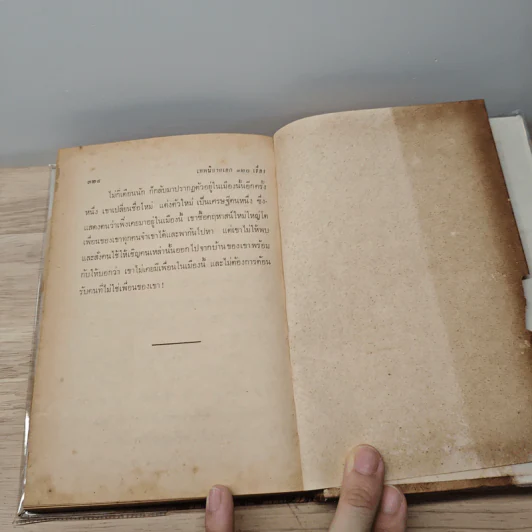 ๓๒๔
เทพนิยายเอก ๑๒๐ เรื่อง
ไม่กี่เดือนนัก ก็กลับมาปรากฏตัวอยู่ในเมืองนั้นอีกครั้ง
หนึ่ง เขาเปลี่ยนชื่อใหม่ แต่งตัวใหม่ เป็นเศรษฐีคนหนึ่ง ซึ่ง
แสดงตนว่าเพิ่งเคยมาอยู่ในเมืองนี้ เขาซื้อคฤหาสน์ใหม่ใหญ่โต
เพื่อนของเขาทุกคนจำเขาได้และพากันไปหา แต่เขาไม่ให้พบ
และสั่งคนใช้ให้เชิญคนเหล่านั้นออกไปจากบ้านของเขาพร้อม
กับให้บอกว่า เขาไม่เคยมีเพื่อนในเมืองนี้ และไม่ต้องการต้อน
รับคนที่ไม่ใช่เพื่อนของเขา!